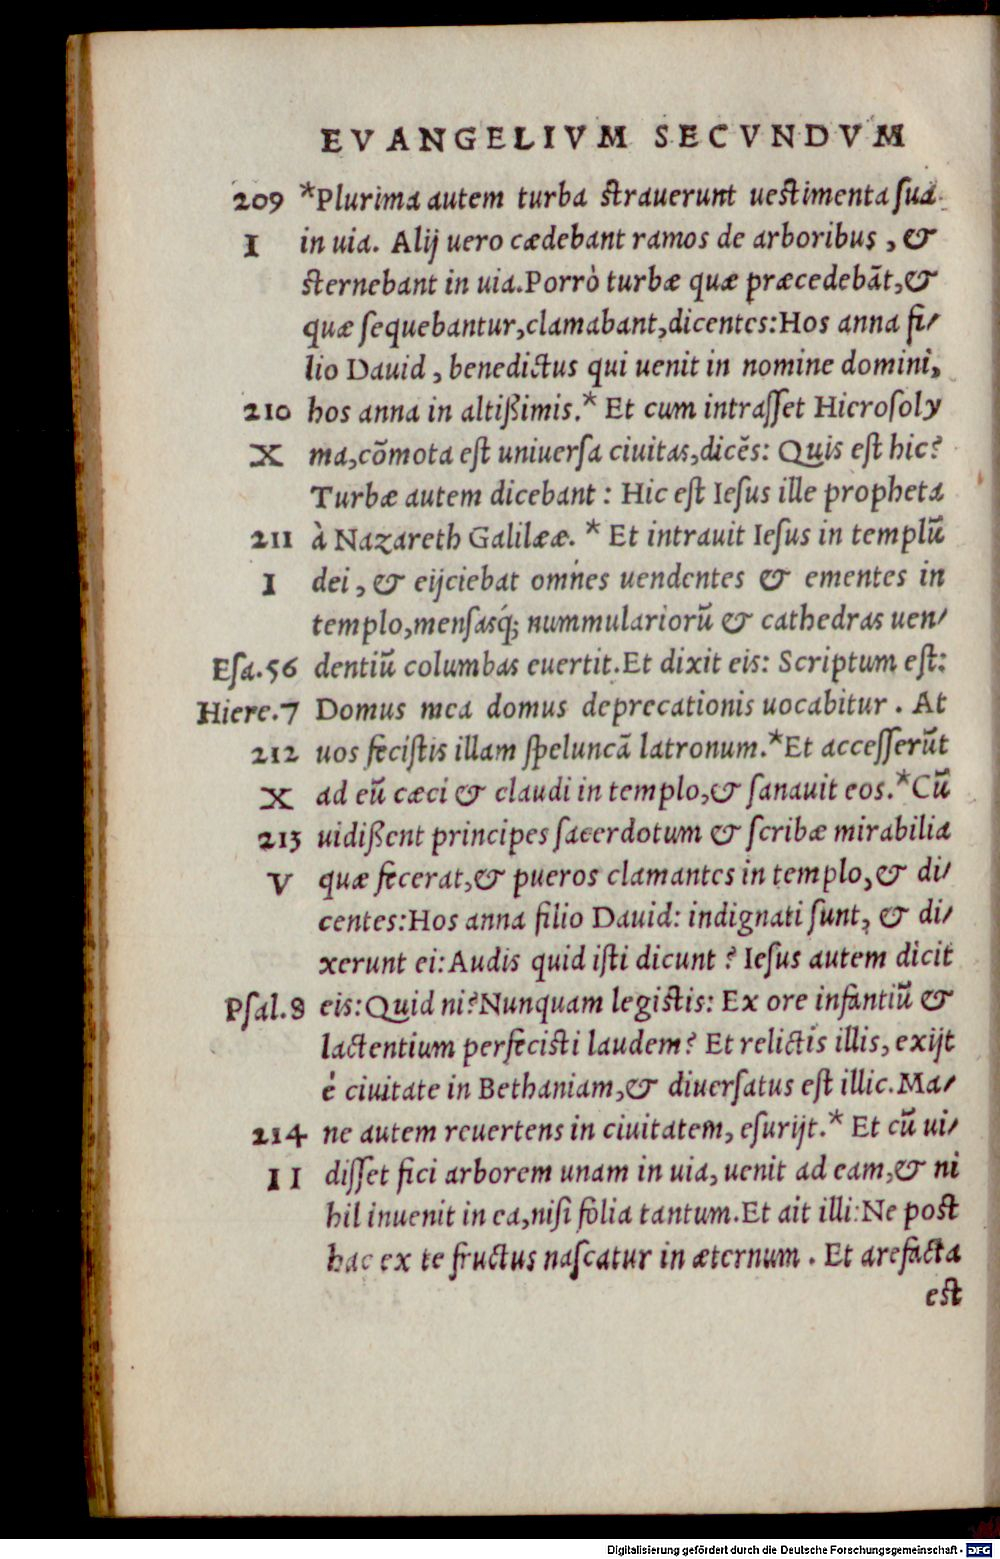 EVANGELIVM SECVNDVM
209 *Plurima autem turba strauerunt uestimenta sua
I in uia. Alij uero cædebant ramos de arboribus , &
sternebant in uia.Porrò turbæ quæ præcedebãt,&
quæ sequebantur,clamabant,dicentes:Hos anna fi/
lio Dauid , benedictus qui uenit in nomine domini,
210 hos anna in altißimis.* Et cum intrasset Hierosoly
X ma,cõmota est uniuersa ciuitas,dicẽs: Quis est hic?
Turbæ autem dicebant : Hic est Iesus ille propheta
211 à Nazareth Galilææ. * Et intrauit Iesus in templũ
I dei , & eijciebat omnes uendentes & ementes in
templo,mensasq́; nummulariorũ & cathedras uen/
Esa.56 dentiũ columbas euertit.Et dixit eis: Scriptum est:
Hiere.7 Domus mea domus deprecationis uocabitur . At
212 uos fecistis illam speluncã latronum.*Et accesserũt
X ad eũ cæci & claudi in templo,& sanauit eos.*Cũ
213 uidißent principes sacerdotum & scribæ mirabilia
V quæ fecerat,& pueros clamantes in templo,& di/
centes:Hos anna filio Dauid: indignati sunt, & di/
xerunt ei:Audis quid isti dicunt ? Iesus autem dicit
Psal.8 eis:Quid ni?Nunquam legistis: Ex ore infantiũ &
lactentium perfecisti laudem? Et relictis illis, exijt
è ciuitate in Bethaniam,& diuersatus est illic.Ma/
214 ne autem reuertens in ciuitatem, esurijt.* Et cũ ui/
II disset fici arborem unam in uia, uenit ad eam,& ni
hil inuenit in ea,nisi folia tantum.Et ait illi:Ne post
hac ex te fructus nascatur in æternum . Et arefacta
est
Digitalisierung gefördert durch die Deutsche Forschungsgemeinschaft - DFG